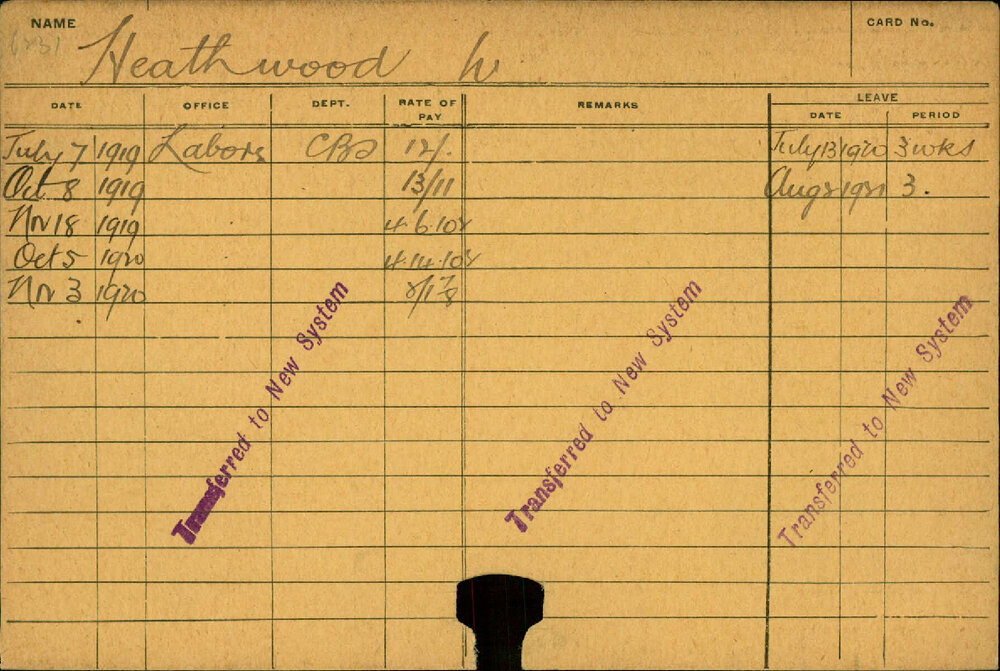 NAME CARD No.
Heathwood W
DATE OFFICE DEPT. RATE OF PAY REMARKS LEAVE
DATE PERIOD
July 7 1919 Labors 12/. July 13 1920 3 wks
Oct 8 1919 13/11 Aug 8 1921 3.
Nov 18 1919 4.6.10½
Oct 5 1920 4.14.10½
Nov 3 1920
Transferred to New System
Transferred to New System
Transferred to New System